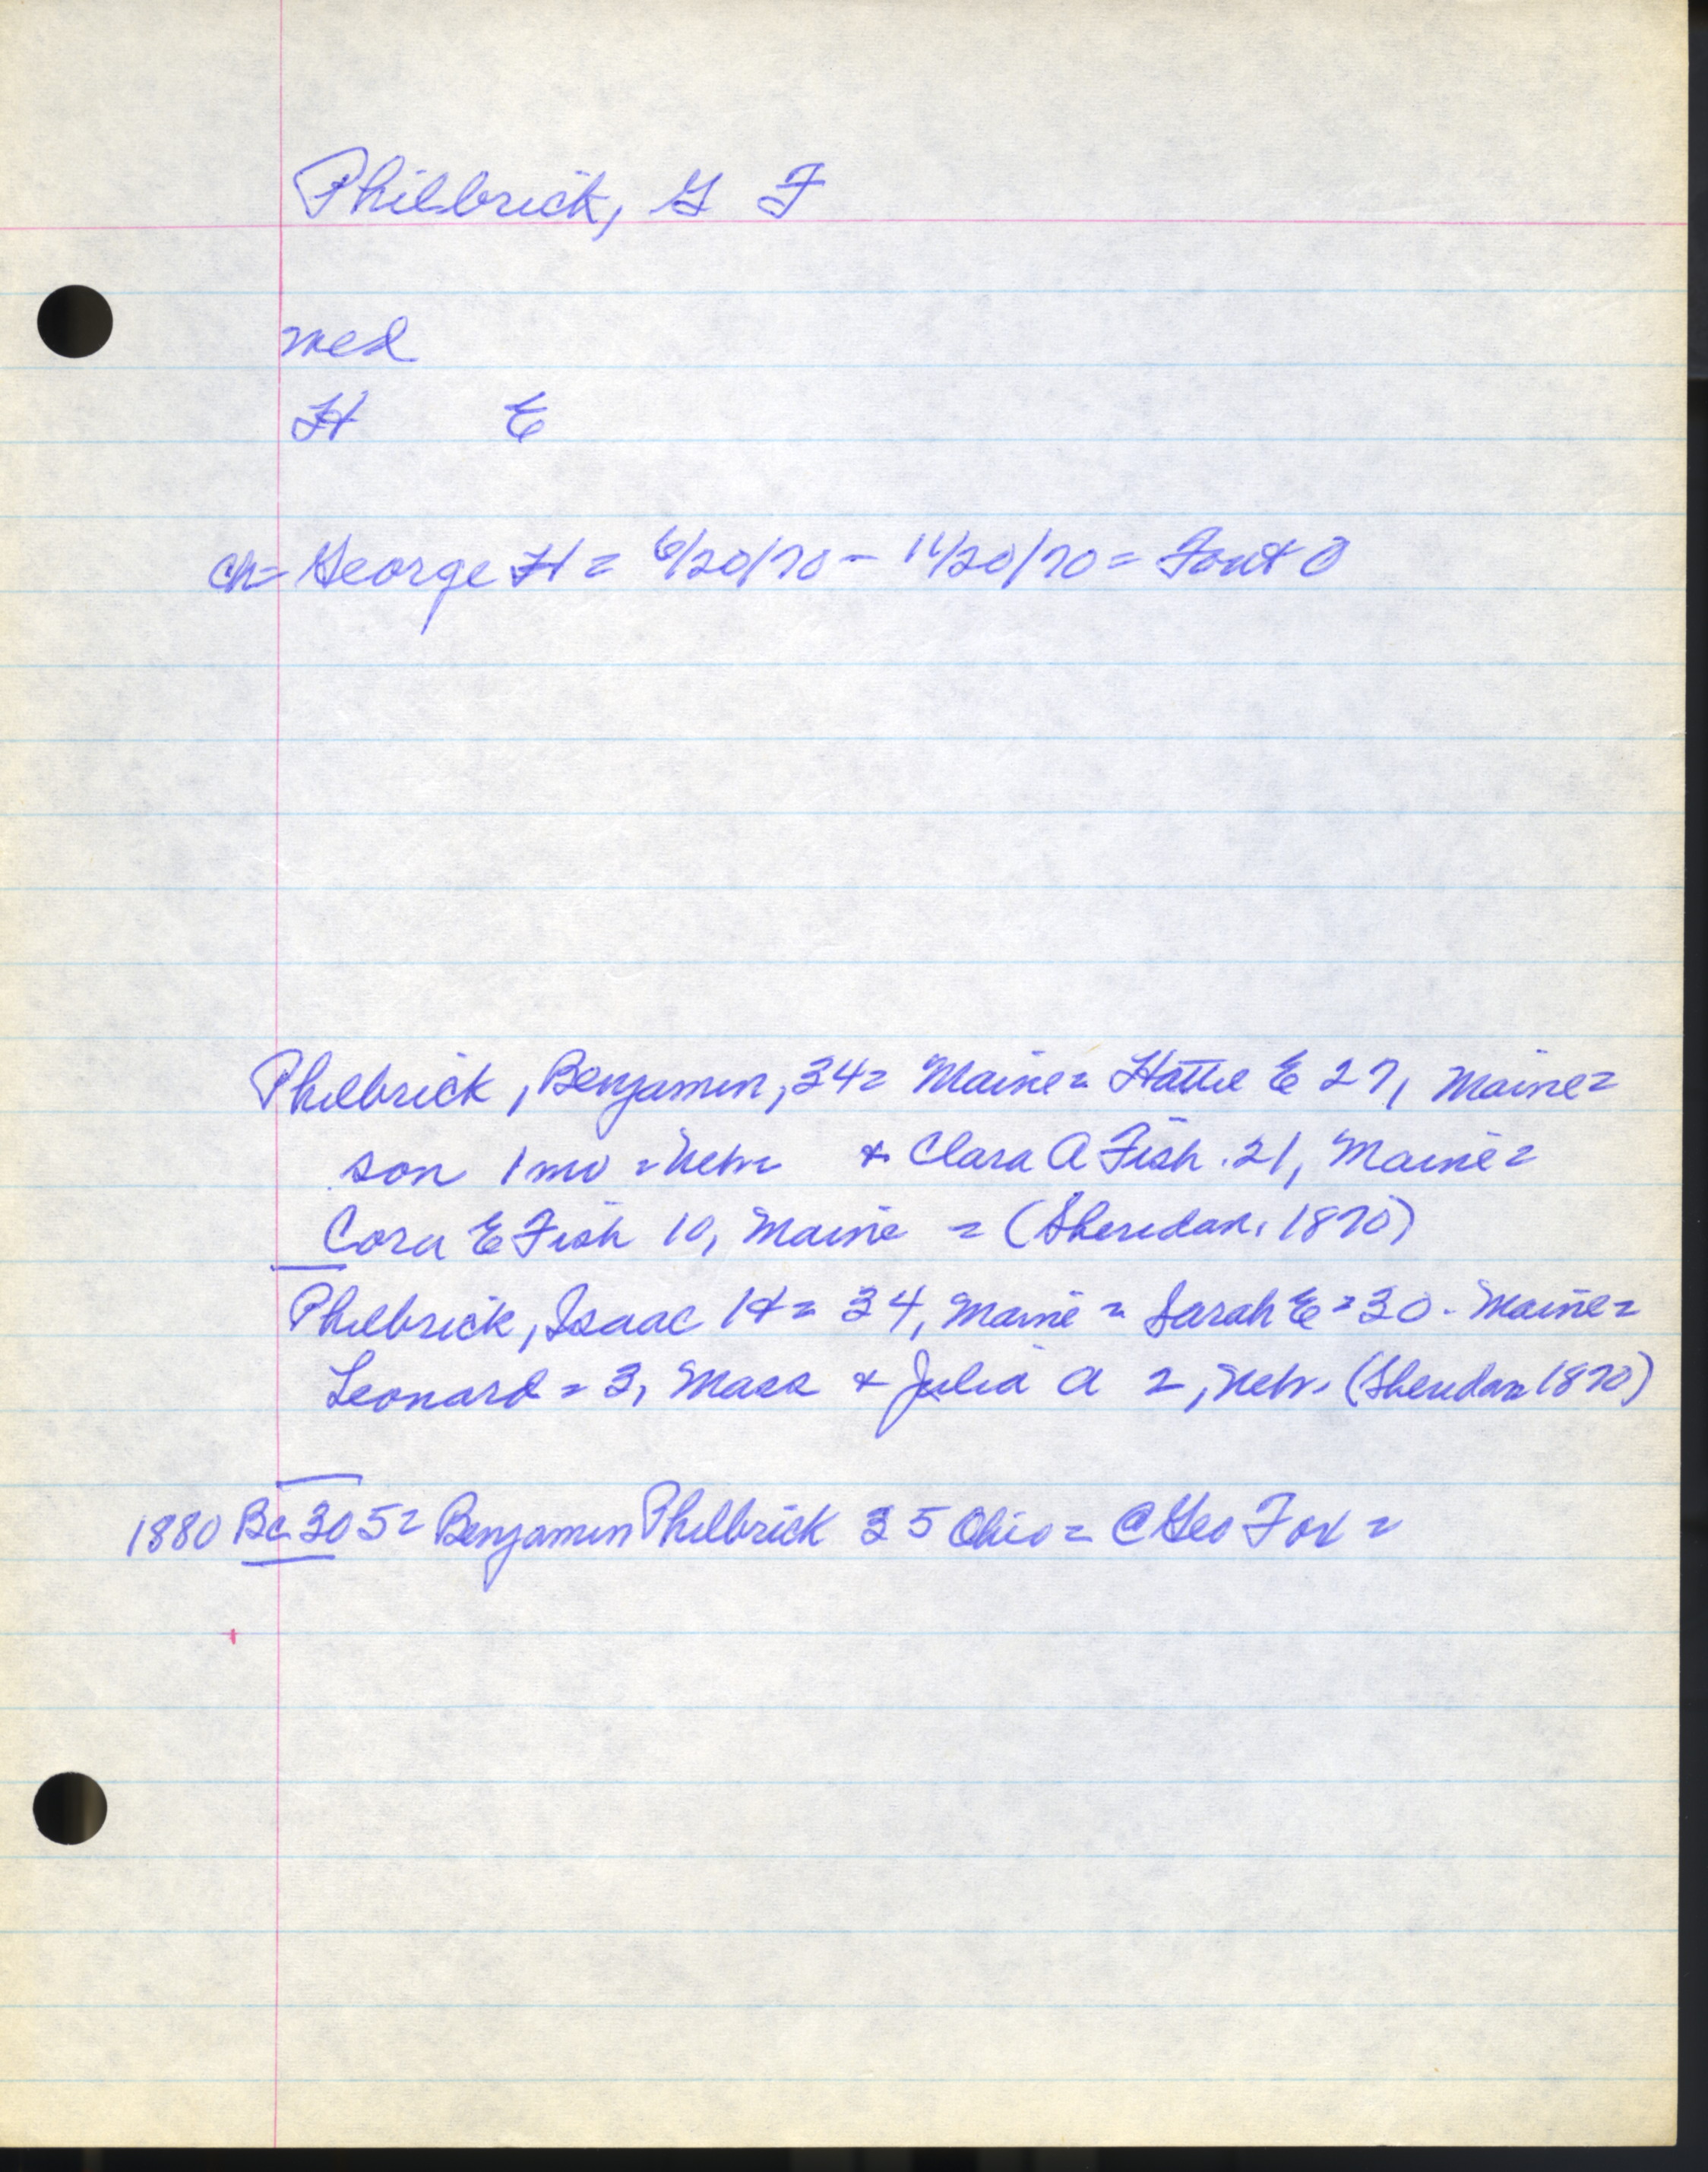 Philbrick, G F
med
H E
ch= George H = 6/20/70 - 11/20/70 = Font O
Philbrick, Benjamin, 34= Maine= Hattie E 27, Maine=
son 1 mo = Nebr & Clara A Fish 21, Maine=
Cora E Fish 10, Maine = (Sheridan, 1870)
Philbrick, Isaac H= 34, Maine = Sarah E = 30 - Maine=
Leonard = 3, Mass & Julia A 2, Nebr. (Sheridan 1870)
1880 Bc 305= Benjamin Philbrick 35 Ohio = @ Geo Fox =